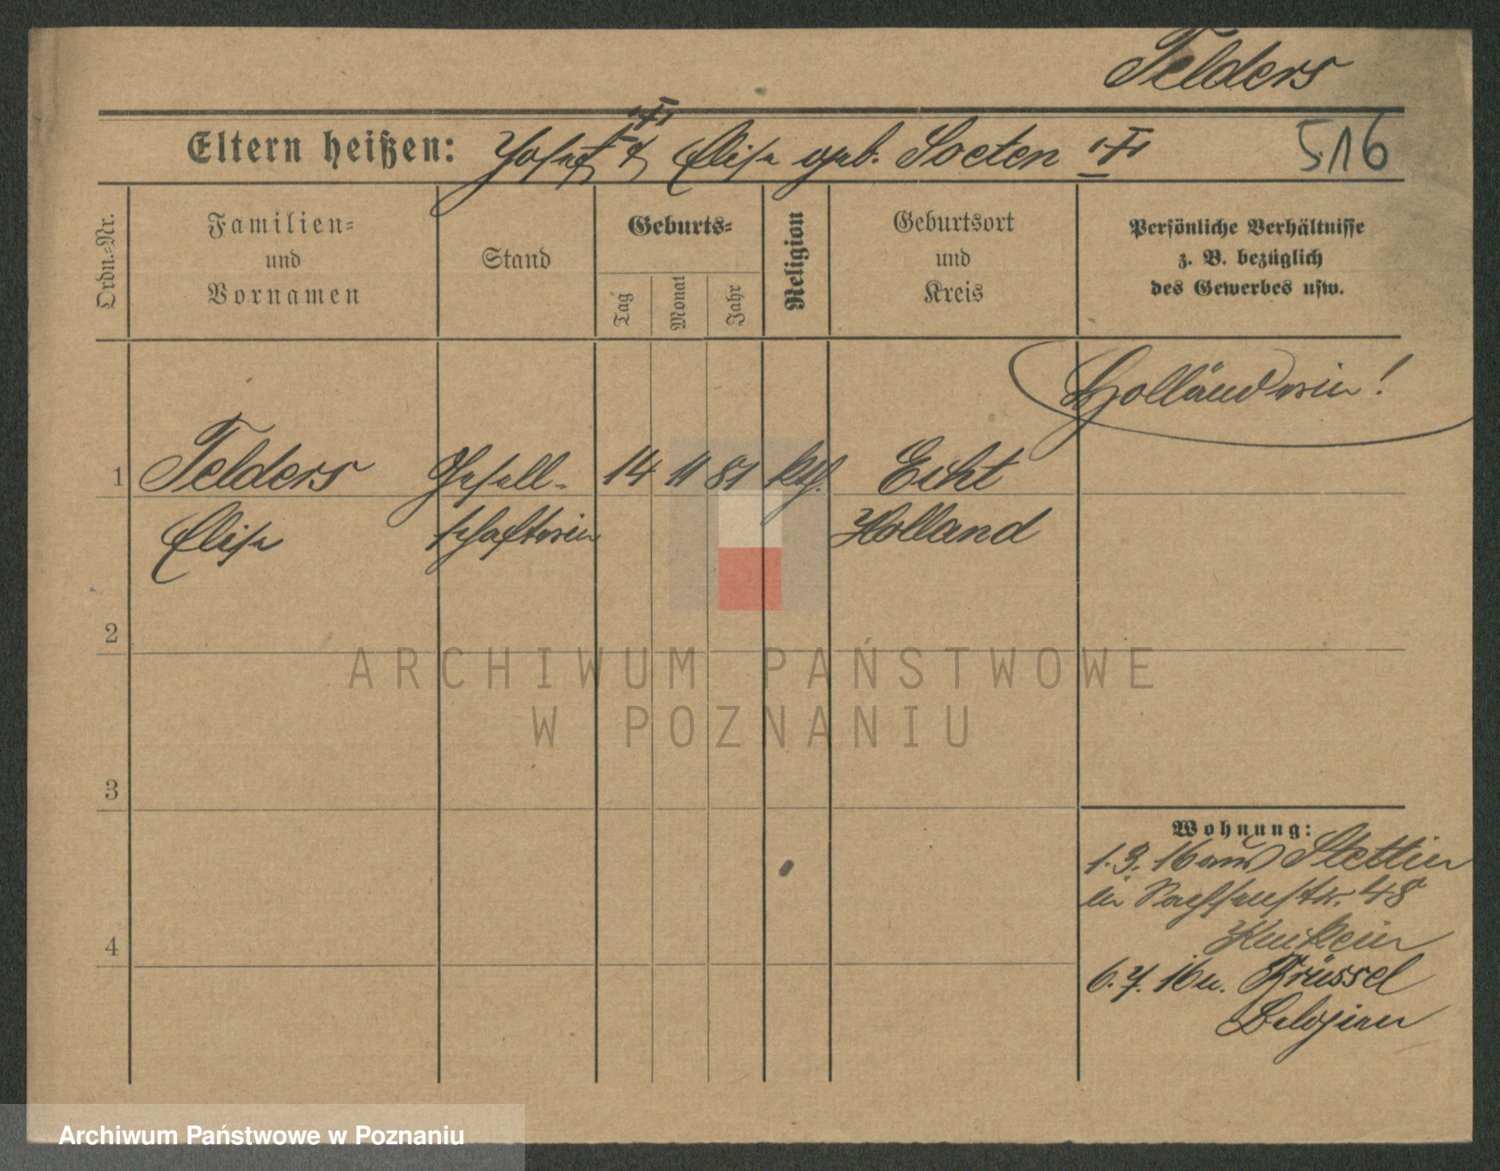 Telders
Eltern heißen: Josef Elise geb. Soeten
516
Ordn.-Nr.
Familien=
und
Vornamen
Stand
Geburts=
Tag
Monat
Jahr
Religion
Geburtsort
und
Kreis
Persönliche Verhältnisse
z. B. bezüglich
des Gewerbes usw.
Holländerin!
1 Telders Gesell- 14 11 81 kth. Echt
Elise schafterin Holland
2
ARCHIWUM PAŃSTWOWE
W POZNANIU
3
Wohnung:
1.3.16 aus Stettin
in Sachsenstr. 48
4
6.7.16 n. Brüssel
Belgien
Archiwum Państwowe w Poznaniu